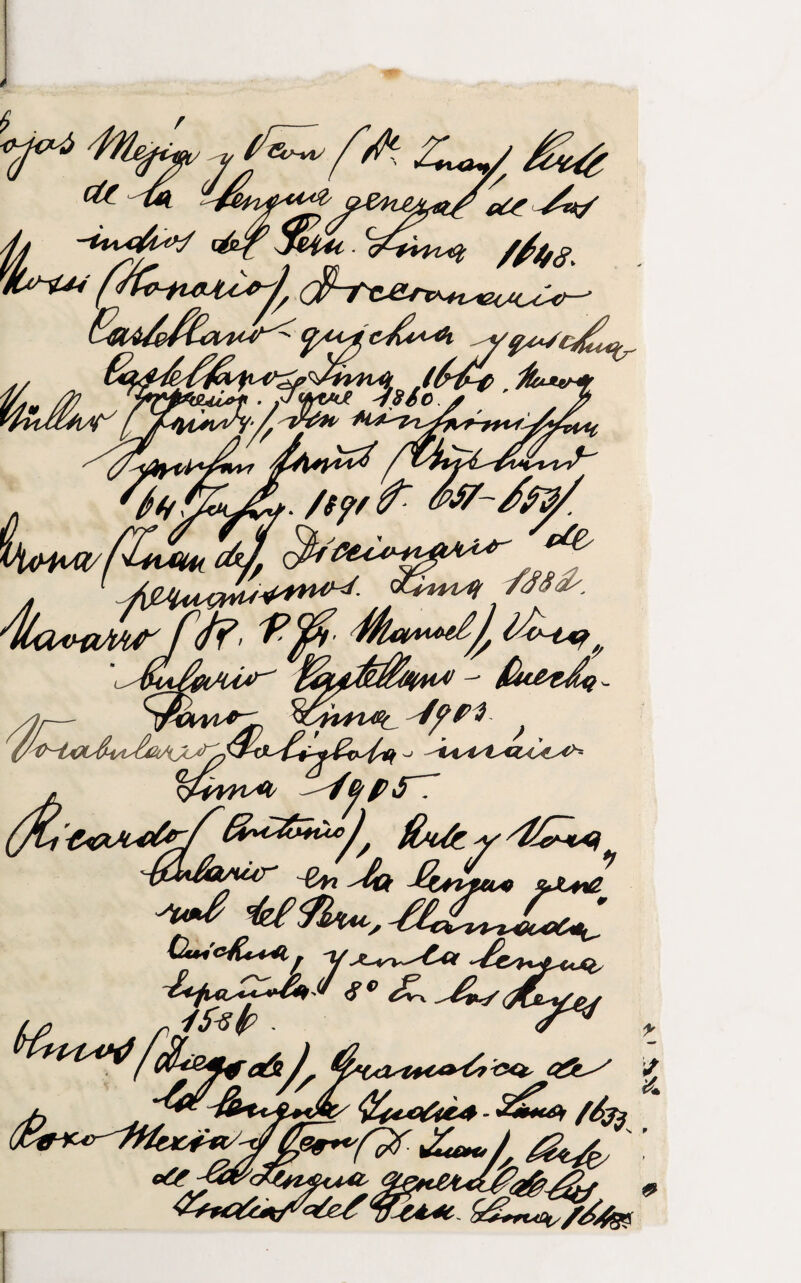 ojas Mejia y Veon (Dr. Inan), Arte
de la lengua general de los
indios del Peru. Lima 1648.
Mossi (Honorio), Diccionario
Castellano - quichua y quichua
Castellano, Lima 1660. Nueva
Impresion. Sucre 1860.
Müller (Friedr.), den
(Ausland
64. Jahrg. 1891 S. 651-653).
Arona (Inan de), Diccionario de
peruanismos. Lima 1882.
Navarro (R. P. Fr. Manuel), Voca„
bulario Castellano - Quecha-
Pano Lima 1903.
Vocabulario Poliglota - incaico
Lima 1905.
Ricardo (Antonio), Arte y Voca„
bulario en la lengua gene„
ral del Peru, llamada
Quichua, y en la lengua
Española. 8º En los Reyes
1586.
Olmos (Diego de), Gramatica de
la lengua Indica. Lima 1633.
Roxo Mexia y Ocon (D. Juan), Arte
de la Lengua General de los
Indios del Peru. Lima 1648.